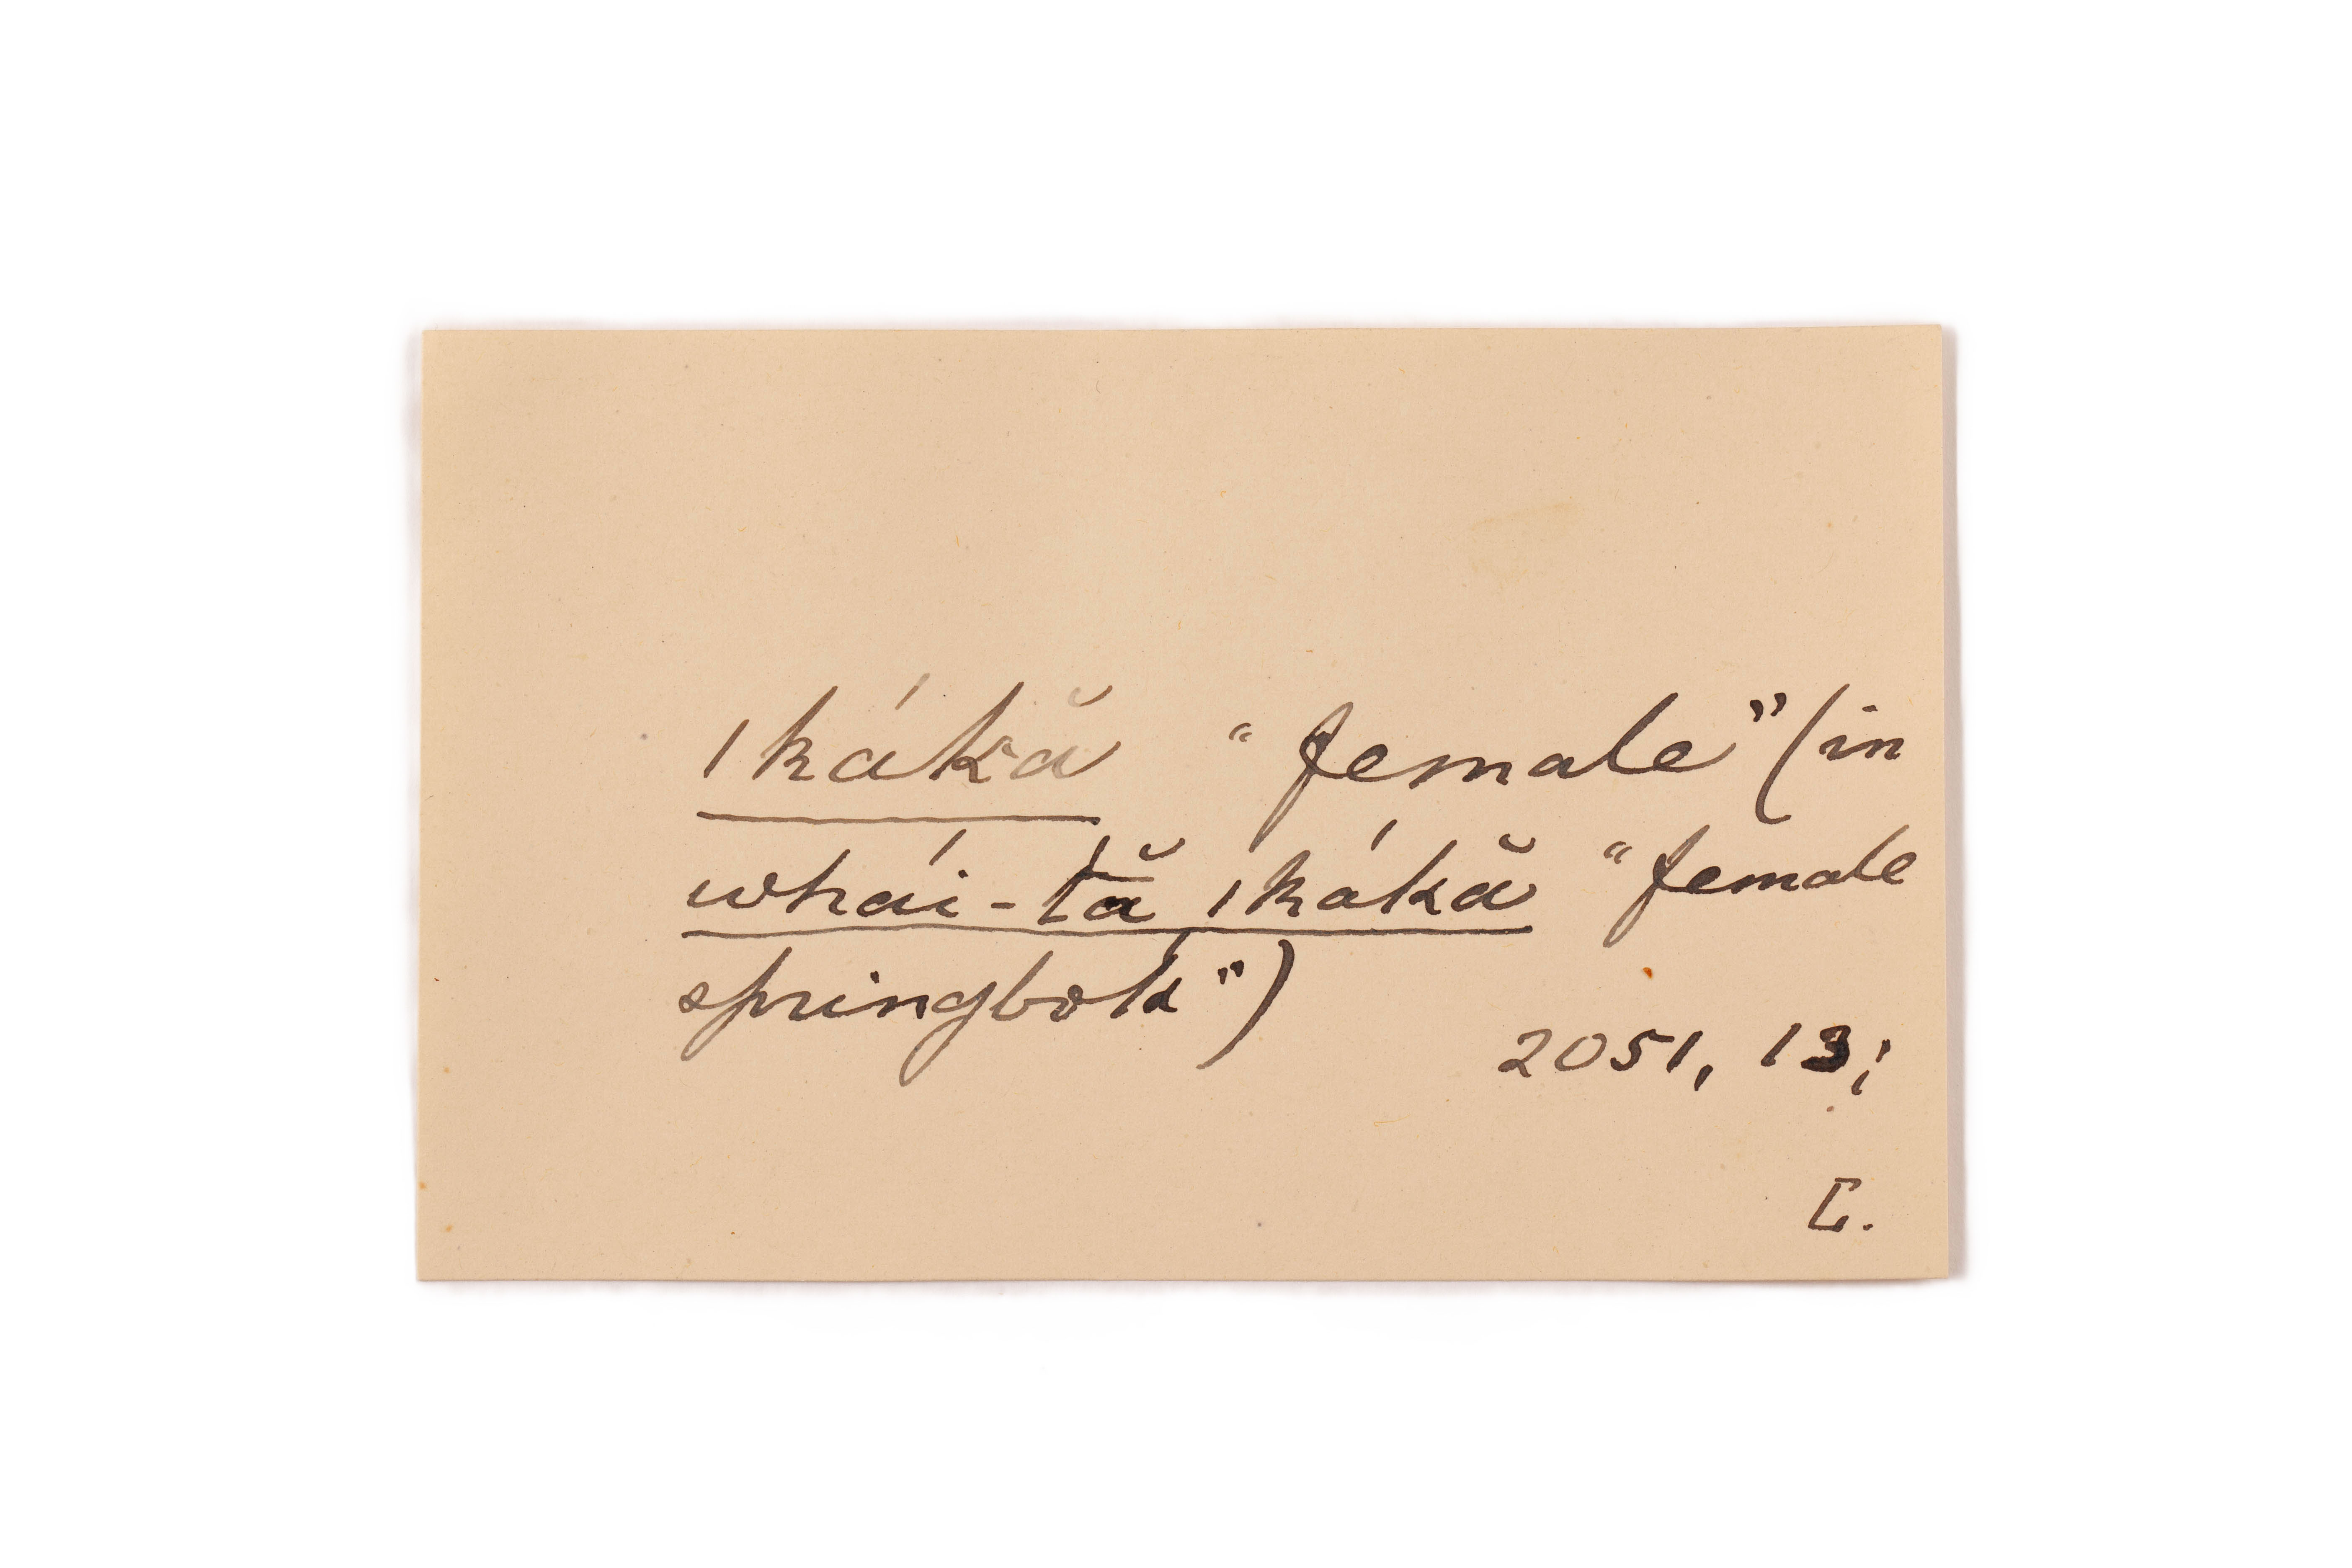 ǀkákă “female” (in
whái-tă ǀkákă “female
springbok”)
2051, 13;
L.